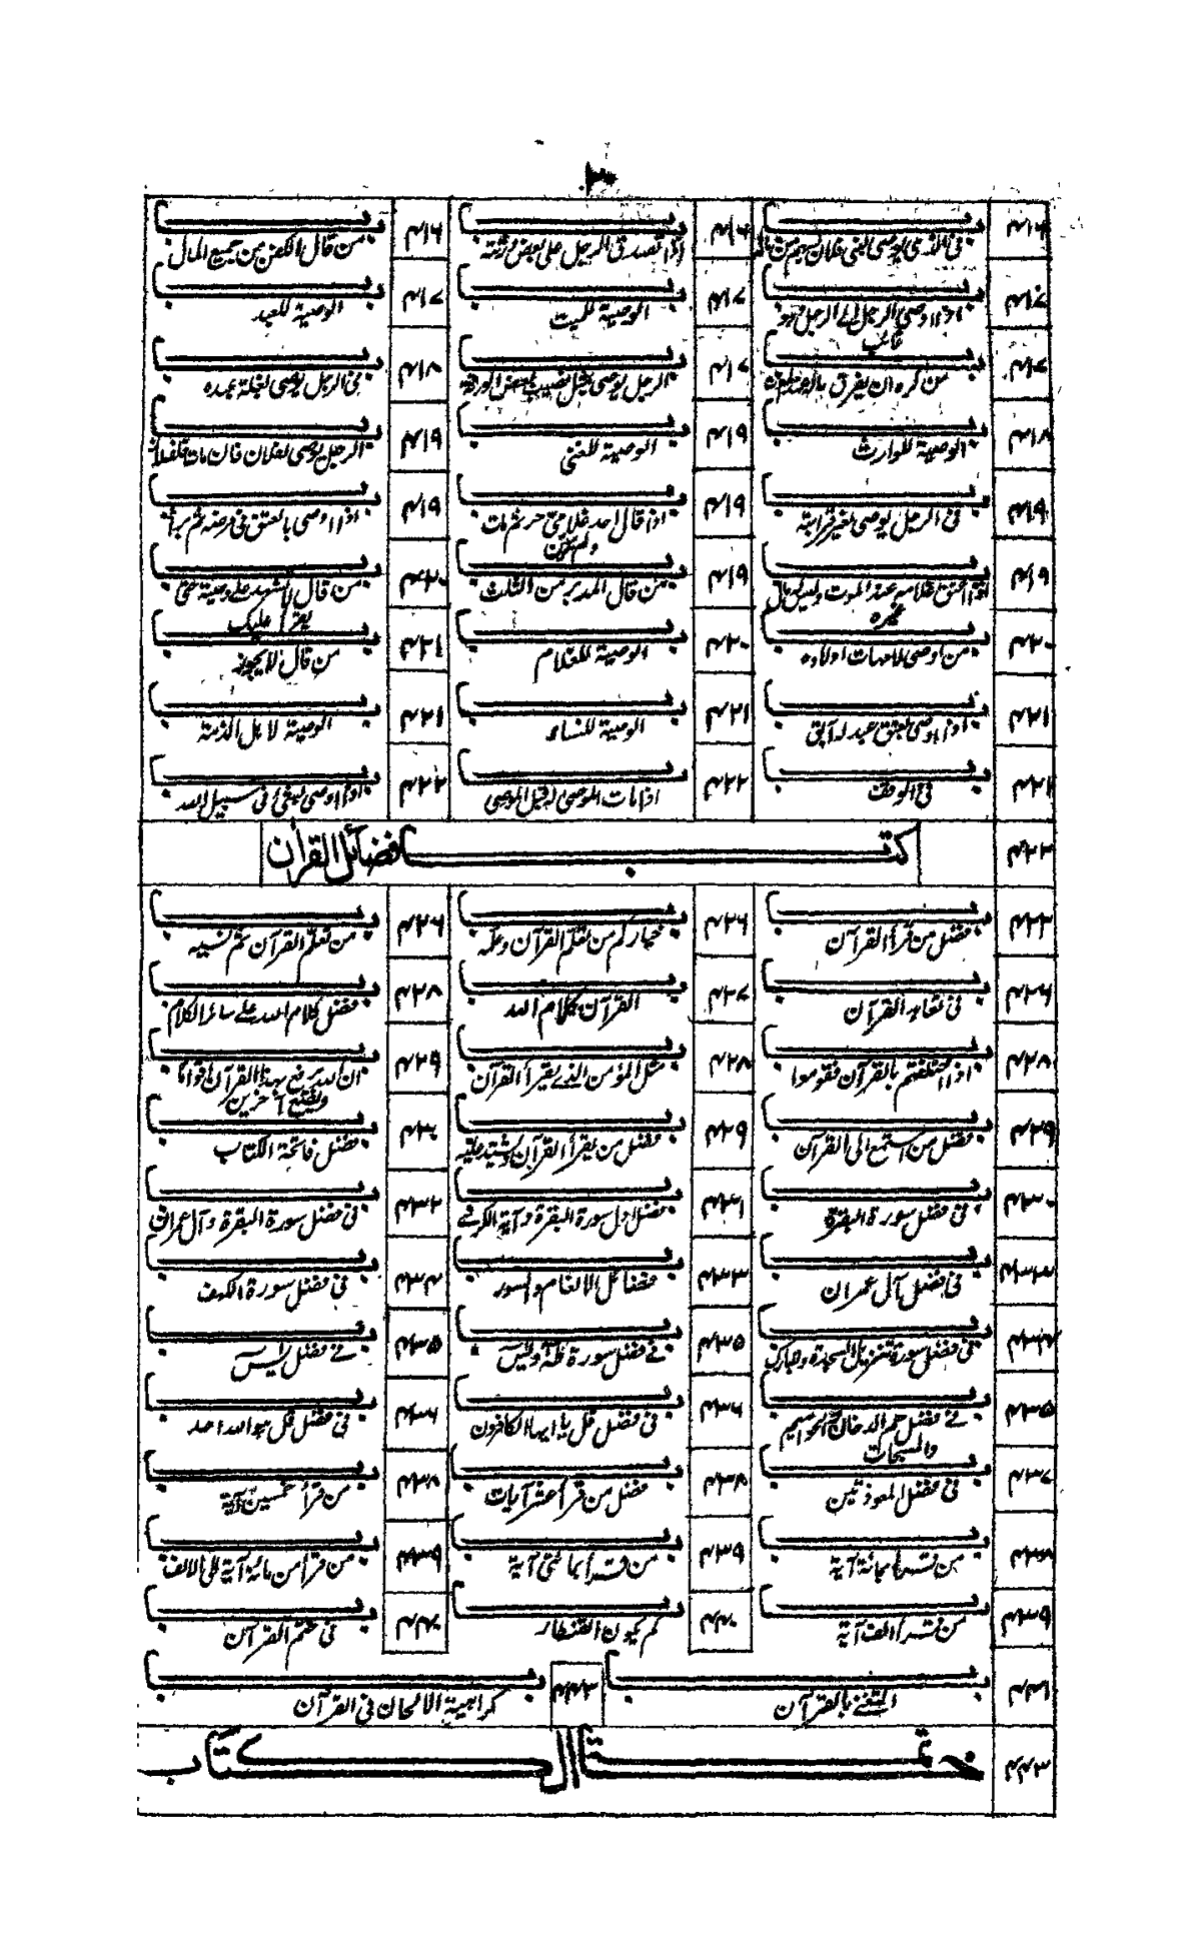 ٣٠
٤١٦ باب في الذي يوصي لبني فلان بسهم من ماله ٤١٦ باب اذا تصدق الرجل على بعض ورثته ٤١٦ باب من قال الكفن من جميع المال
٤١٧ باب اذا اوصى الرجل الى الرجل وهو غائب ٤١٧ باب الوصية للميت ٤١٧ باب الوصية للعبد
٤١٧ باب من كره ان يفرق ماله ٤١٧ باب الرجل يوصي بمثل نصيب بعض الورثة ٤١٨ باب في الرجل يوصي بغلة عبده
٤١٨ باب الوصية للوارث ٤١٩ باب الوصية للغني ٤١٩ باب الرجل يوصي لفلان فان مات فلفلان
٤١٩ باب في الرجل يوصي لغير قرابته ٤١٩ باب اذا قال احد غلامي حر ثم مات ولم يبين ٤١٩ باب اذا اوصى بالعتق في مرضه ثم برأ
٤١٩ باب اذا اعتق غلامه عند الموت وليس له مال غيره ٤١٩ باب من قال المدبر من الثلث ٤٢٠ باب من قال لا تشهد على وصية حتى يقرأ عليك
٤٢٠ باب من اوصى لامهات اولاده ٤٢٠ باب الوصية للغلام ٤٢١ باب من قال لا يجوز
٤٢١ باب اذا اوصى بعتق عبد له آبق ٤٢١ باب الوصية للنساء ٤٢١ باب الوصية لاهل الذمة
٤٢١ باب في الوقف ٤٢٢ باب اذا مات الموصى له قبل الموصي ٤٢٢ باب اذا اوصى بشئ في سبيل الله
٤٢٢ كتاب فضائل القرآن
٤٢٢ باب فضل من قرأ القرآن ٤٢٦ باب خياركم من تعلم القرآن وعلمه ٤٢٦ باب من تعلم القرآن ثم نسيه
٤٢٦ باب في تعاهد القرآن ٤٢٧ باب القرآن كلام الله ٤٢٨ باب فضل كلام الله على سائر الكلام
٤٢٨ باب اذا اختلفتم بالقرآن فقوموا ٤٢٨ باب مثل المؤمن الذي يقرأ القرآن ٤٢٩ باب ان الله يرفع بهذا القرآن اقواما ويضع آخرين
٤٢٩ باب فضل من استمع الى القرآن ٤٢٩ باب فضل من يقرأ القرآن ويشتد عليه ٤٣٠ باب فضل فاتحة الكتاب
٤٣٠ باب في فضل سورة البقرة ٤٣١ باب فضل اول سورة البقرة وآية الكرسي ٤٣٢ باب في فضل سورة البقرة وآل عمران
٤٣٣ باب في فضل آل عمران ٤٣٣ باب فضائل الانعام والسور ٤٣٤ باب في فضل سورة الكهف
٤٣٤ باب في فضل سورة تنزيل السجدة وتبارك ٤٣٥ باب في فضل سورة طه ويس ٤٣٥ باب في فضل يس
٤٣٥ باب في فضل حم الدخان والحواميم والمسبحات ٤٣٦ باب في فضل قل يا ايها الكافرون ٤٣٦ باب في فضل قل هو الله احد
٤٣٧ باب في فضل المعوذتين ٤٣٨ باب فضل من قرأ عشر آيات ٤٣٨ باب من قرأ خمسين آية
٤٣٨ باب من قرأ بمائة آية ٤٣٩ باب من قرأ بمائتي آية ٤٣٩ باب من قرأ من مائة آية الى الالف
٤٣٩ باب من قرأ الف آية ٤٤٠ باب كم يكون القنطار ٤٤٠ باب في ختم القرآن
٤٤١ باب التغني بالقرآن ٤٤٣ باب كراهية الالحان في القرآن
٤٤٣ خاتمة الكتاب